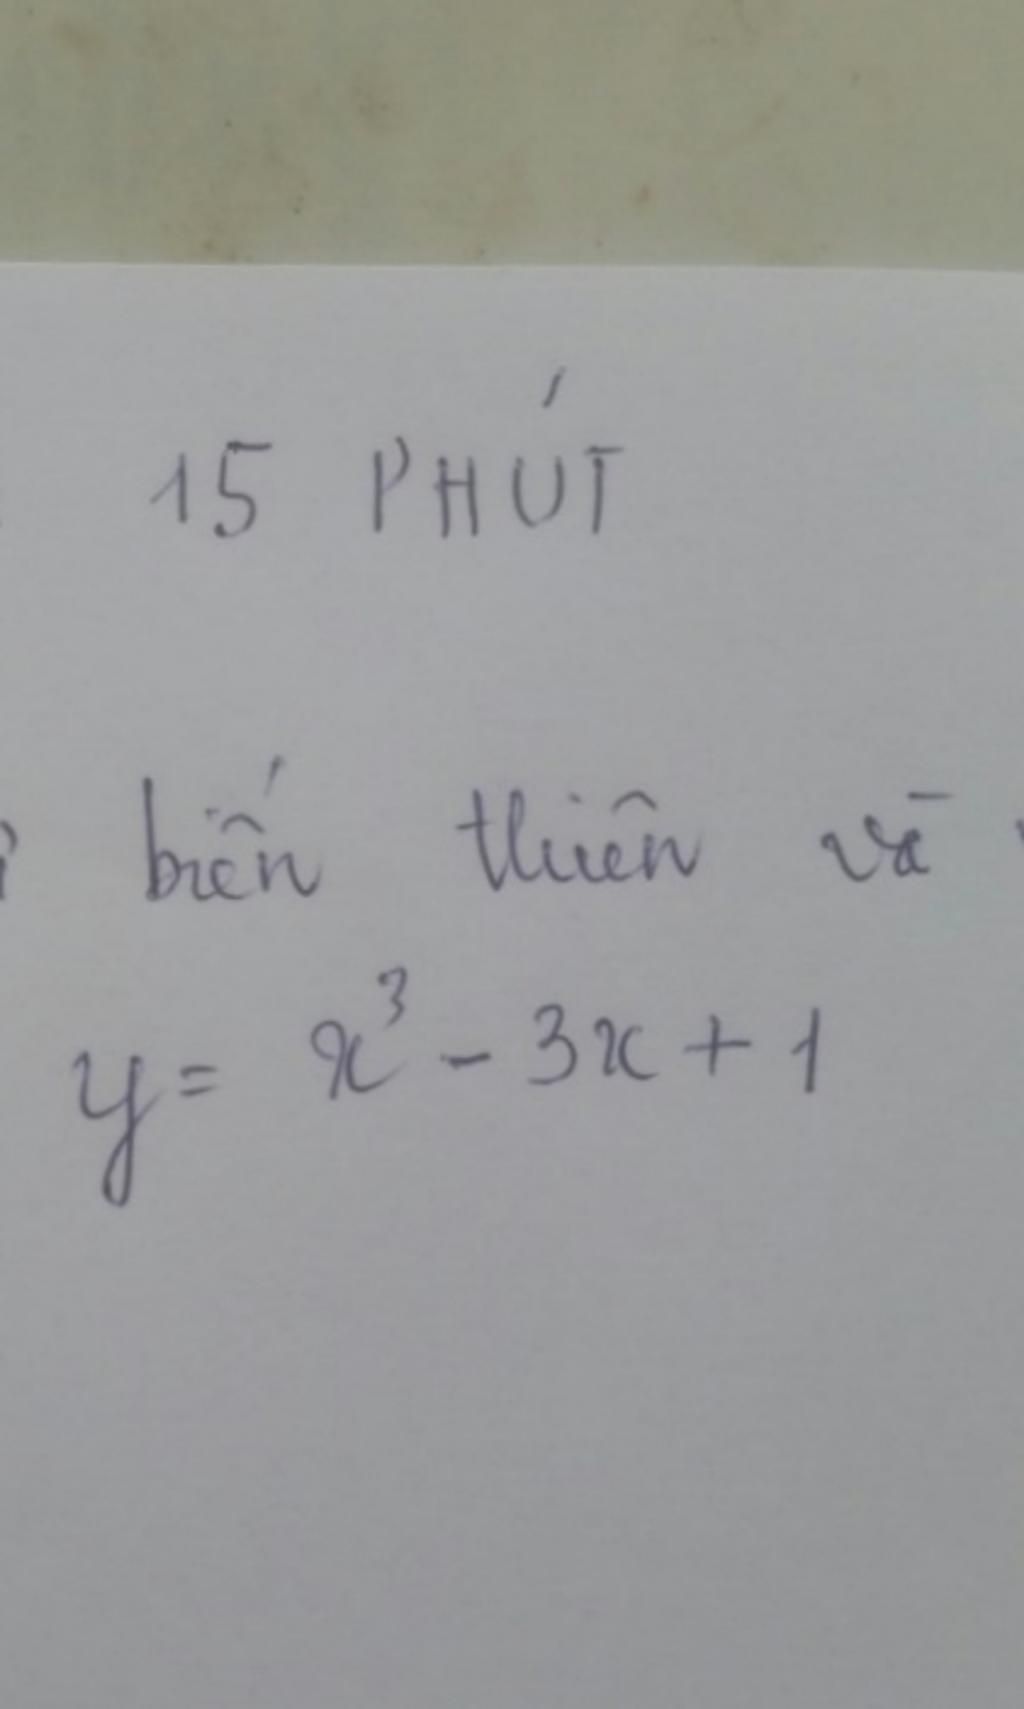 15 PHÚT
biến thiên và
y = x³ - 3x + 1